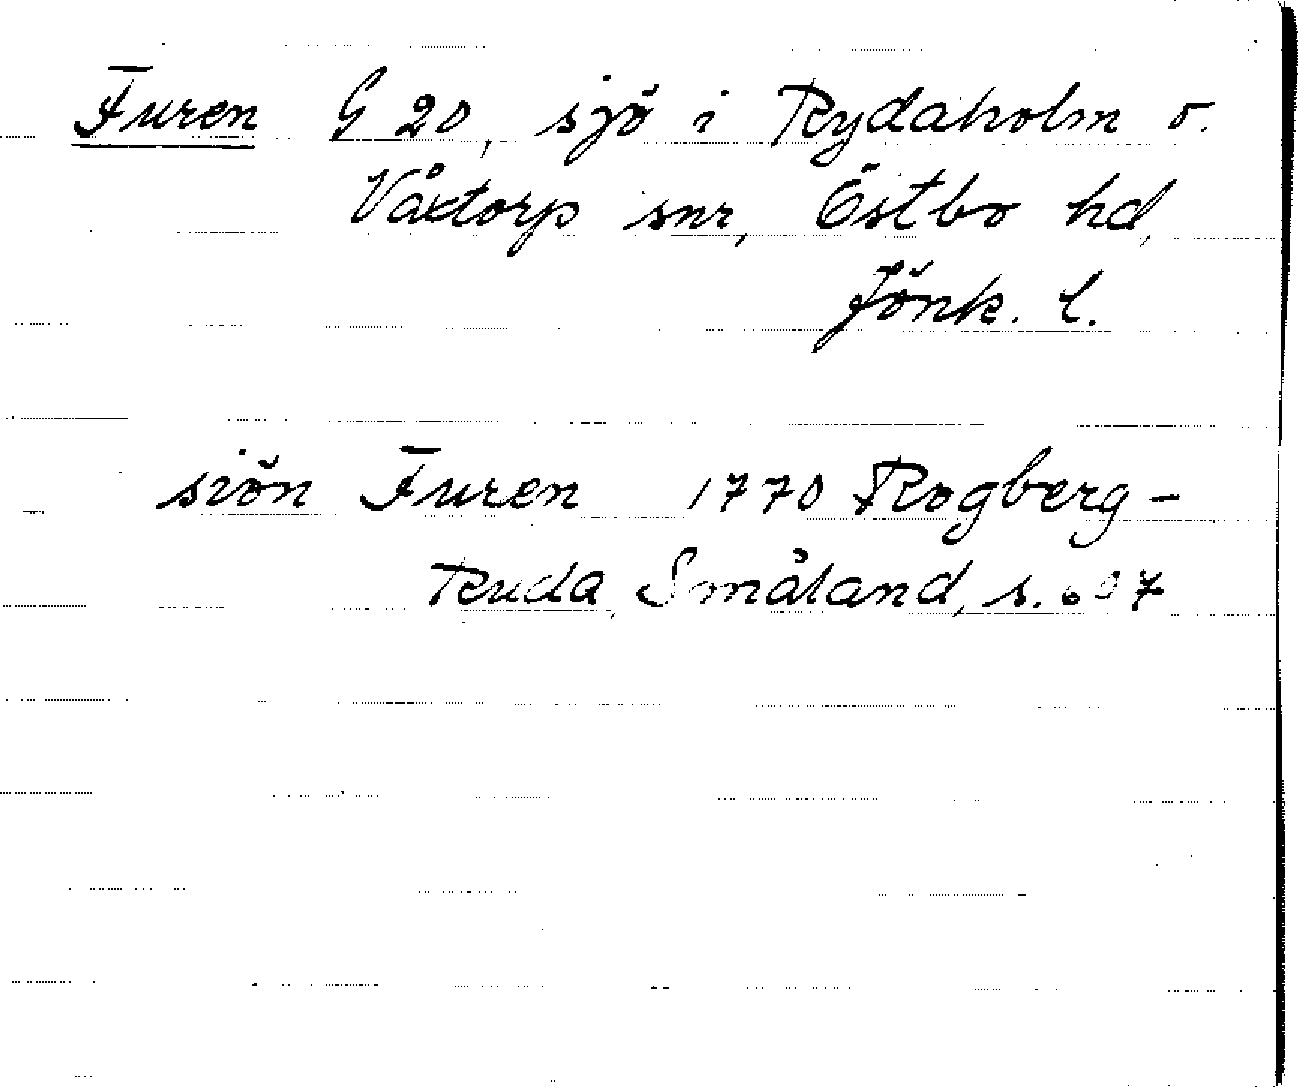 Furen G 20, sjö i Rydaholm o.
Våxtorp snr, Östbo hd,
Jönk. l.
siön Furen 1770 Rogberg-
Ruda, Småland, s. 607